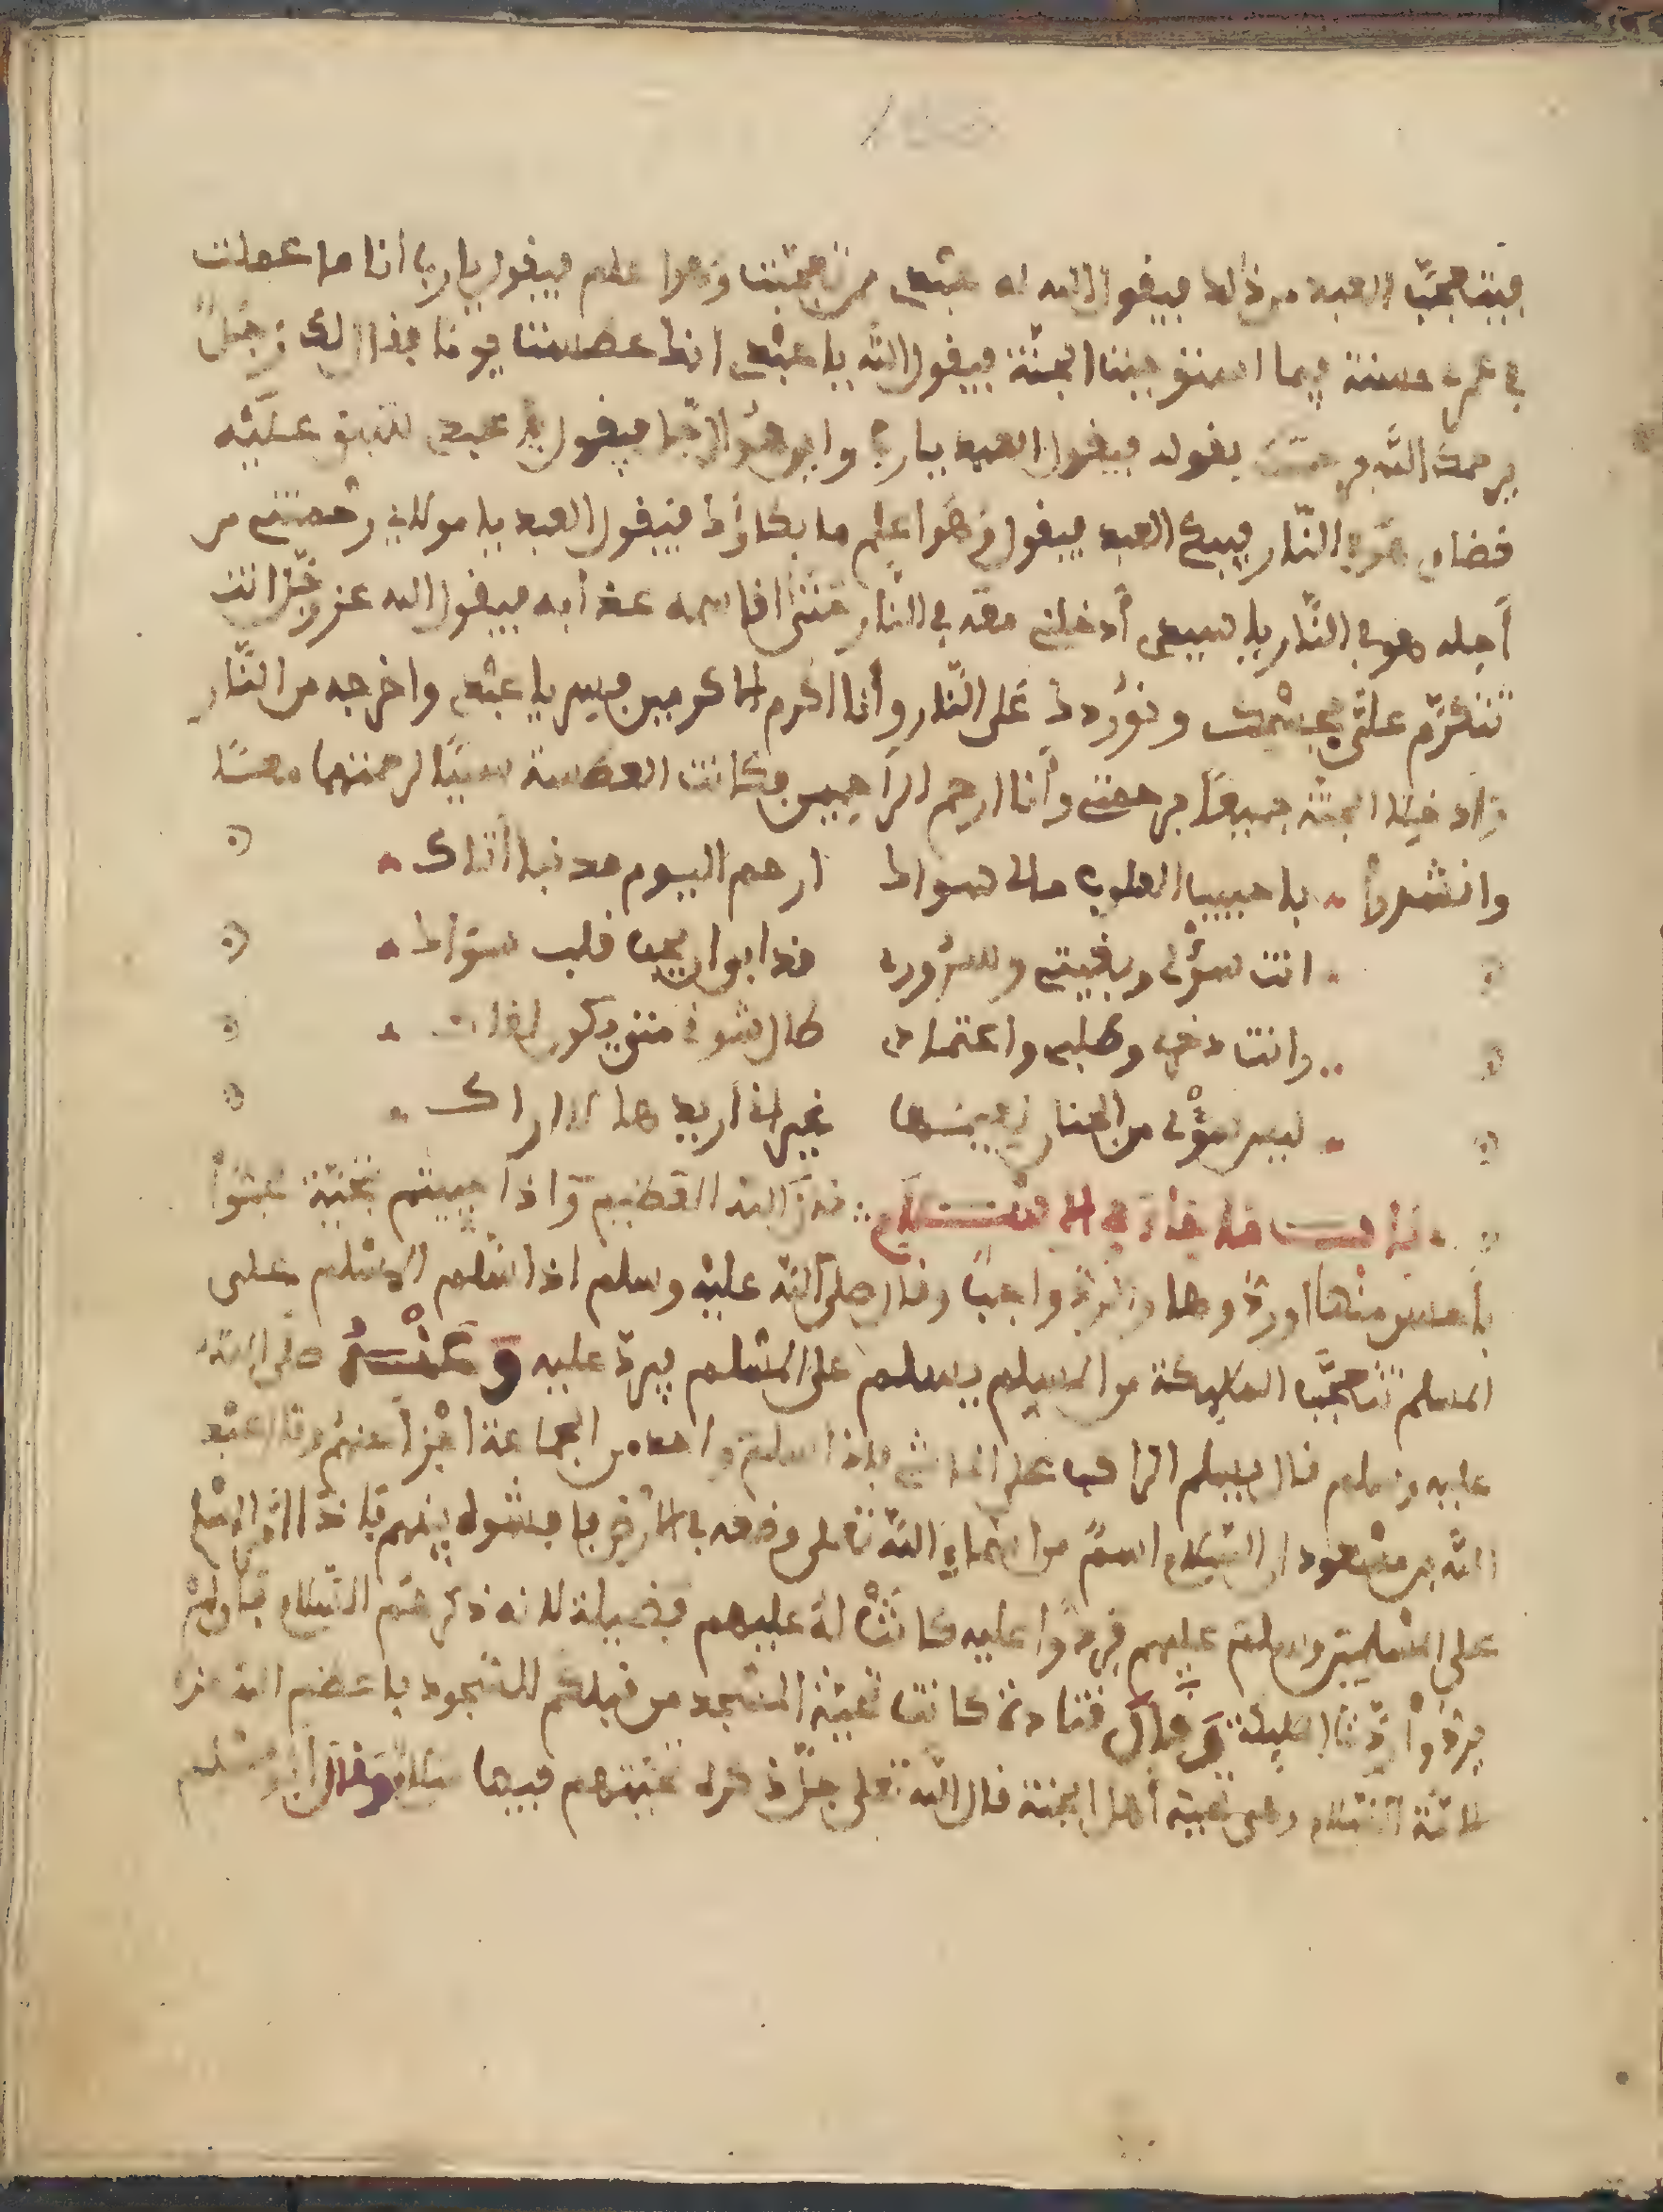 فيتعجّب العبد من ذلك فيقول الله له عبدى مم تعجّبت وهوا علم فيقول يا رب أنا ما عملت
في عمرى حسنة فيما استوجبت الجنة فيقول الله يا عبدى انك عطست يوما فقال لك رجل
يرحمك الله فرحمتك بقوله فيقول العبد يا رب واين هو الرجل فيقول يا عبدى سبق عليه
قضاى هو في النار فيبكى العبد فيقول وهوا علم ما بكاؤك فيقول العبد يا مولاى رحمتنى من
أجله هو في النار يا سيدى أدخلنى معه في النار حتى اقاسمه عذابه فيقول الله عز وجل انت
تتكرّم علىّ بجسمك وتورد على النار وأنا اكرم الاكرمين فسر يا عبدى واخرجه من النار
وادخلا الجنة جميعا برحمتى وأنا ارحم الراحمين فكانت العطسة سببا لرحمتهما معا
وانشدوا يا حبيب القلوب مالى سواك ارحم اليوم مذنبا أتاك
انت سؤلى وبغيتى وسرورى قد ابوا ان يحب قلب سواك
وانت ذخرى وطلبى واعتمادى طال شوقى متى يكون لقاك
ليس سؤلى من الجنان نعيمها غير انى اريدها لاراك
باب ما جاء في السلام قال الله العظيم واذا حييتم بتحية فحيّوا
بأحسن منها اوردّوها والردّ واجب وقال صلى الله عليه وسلم اذا سلم المسلم على
المسلم تتعجّب الملايكة من المسلم يسلم على المسلم يردّ عليه وعنه صلى الله
عليه وسلم قال يسلم الراكب على الماشى واذا سلم واحد من الجماعة اجزأ عنهم وقال عبد
الله بن مسعود ان السلام اسم من اسماء الله تعلى وضعه في الارض فافشوه بينكم فاذا مرّ المسلم
على المسلمين وسلم عليهم فردّوا عليه كانت له عليهم فضيلة لانه ذكرهم السلام فان لم
يردّوا ردّت الملايكة وقال قتادة كانت تحية المسجد من قبلكم للسجود فاعطى الله هذه
الامة السلام وهى تحية أهل الجنة قال الله تعلى جل ذكره تحيتهم فيها سلام وقال ابو مسلم